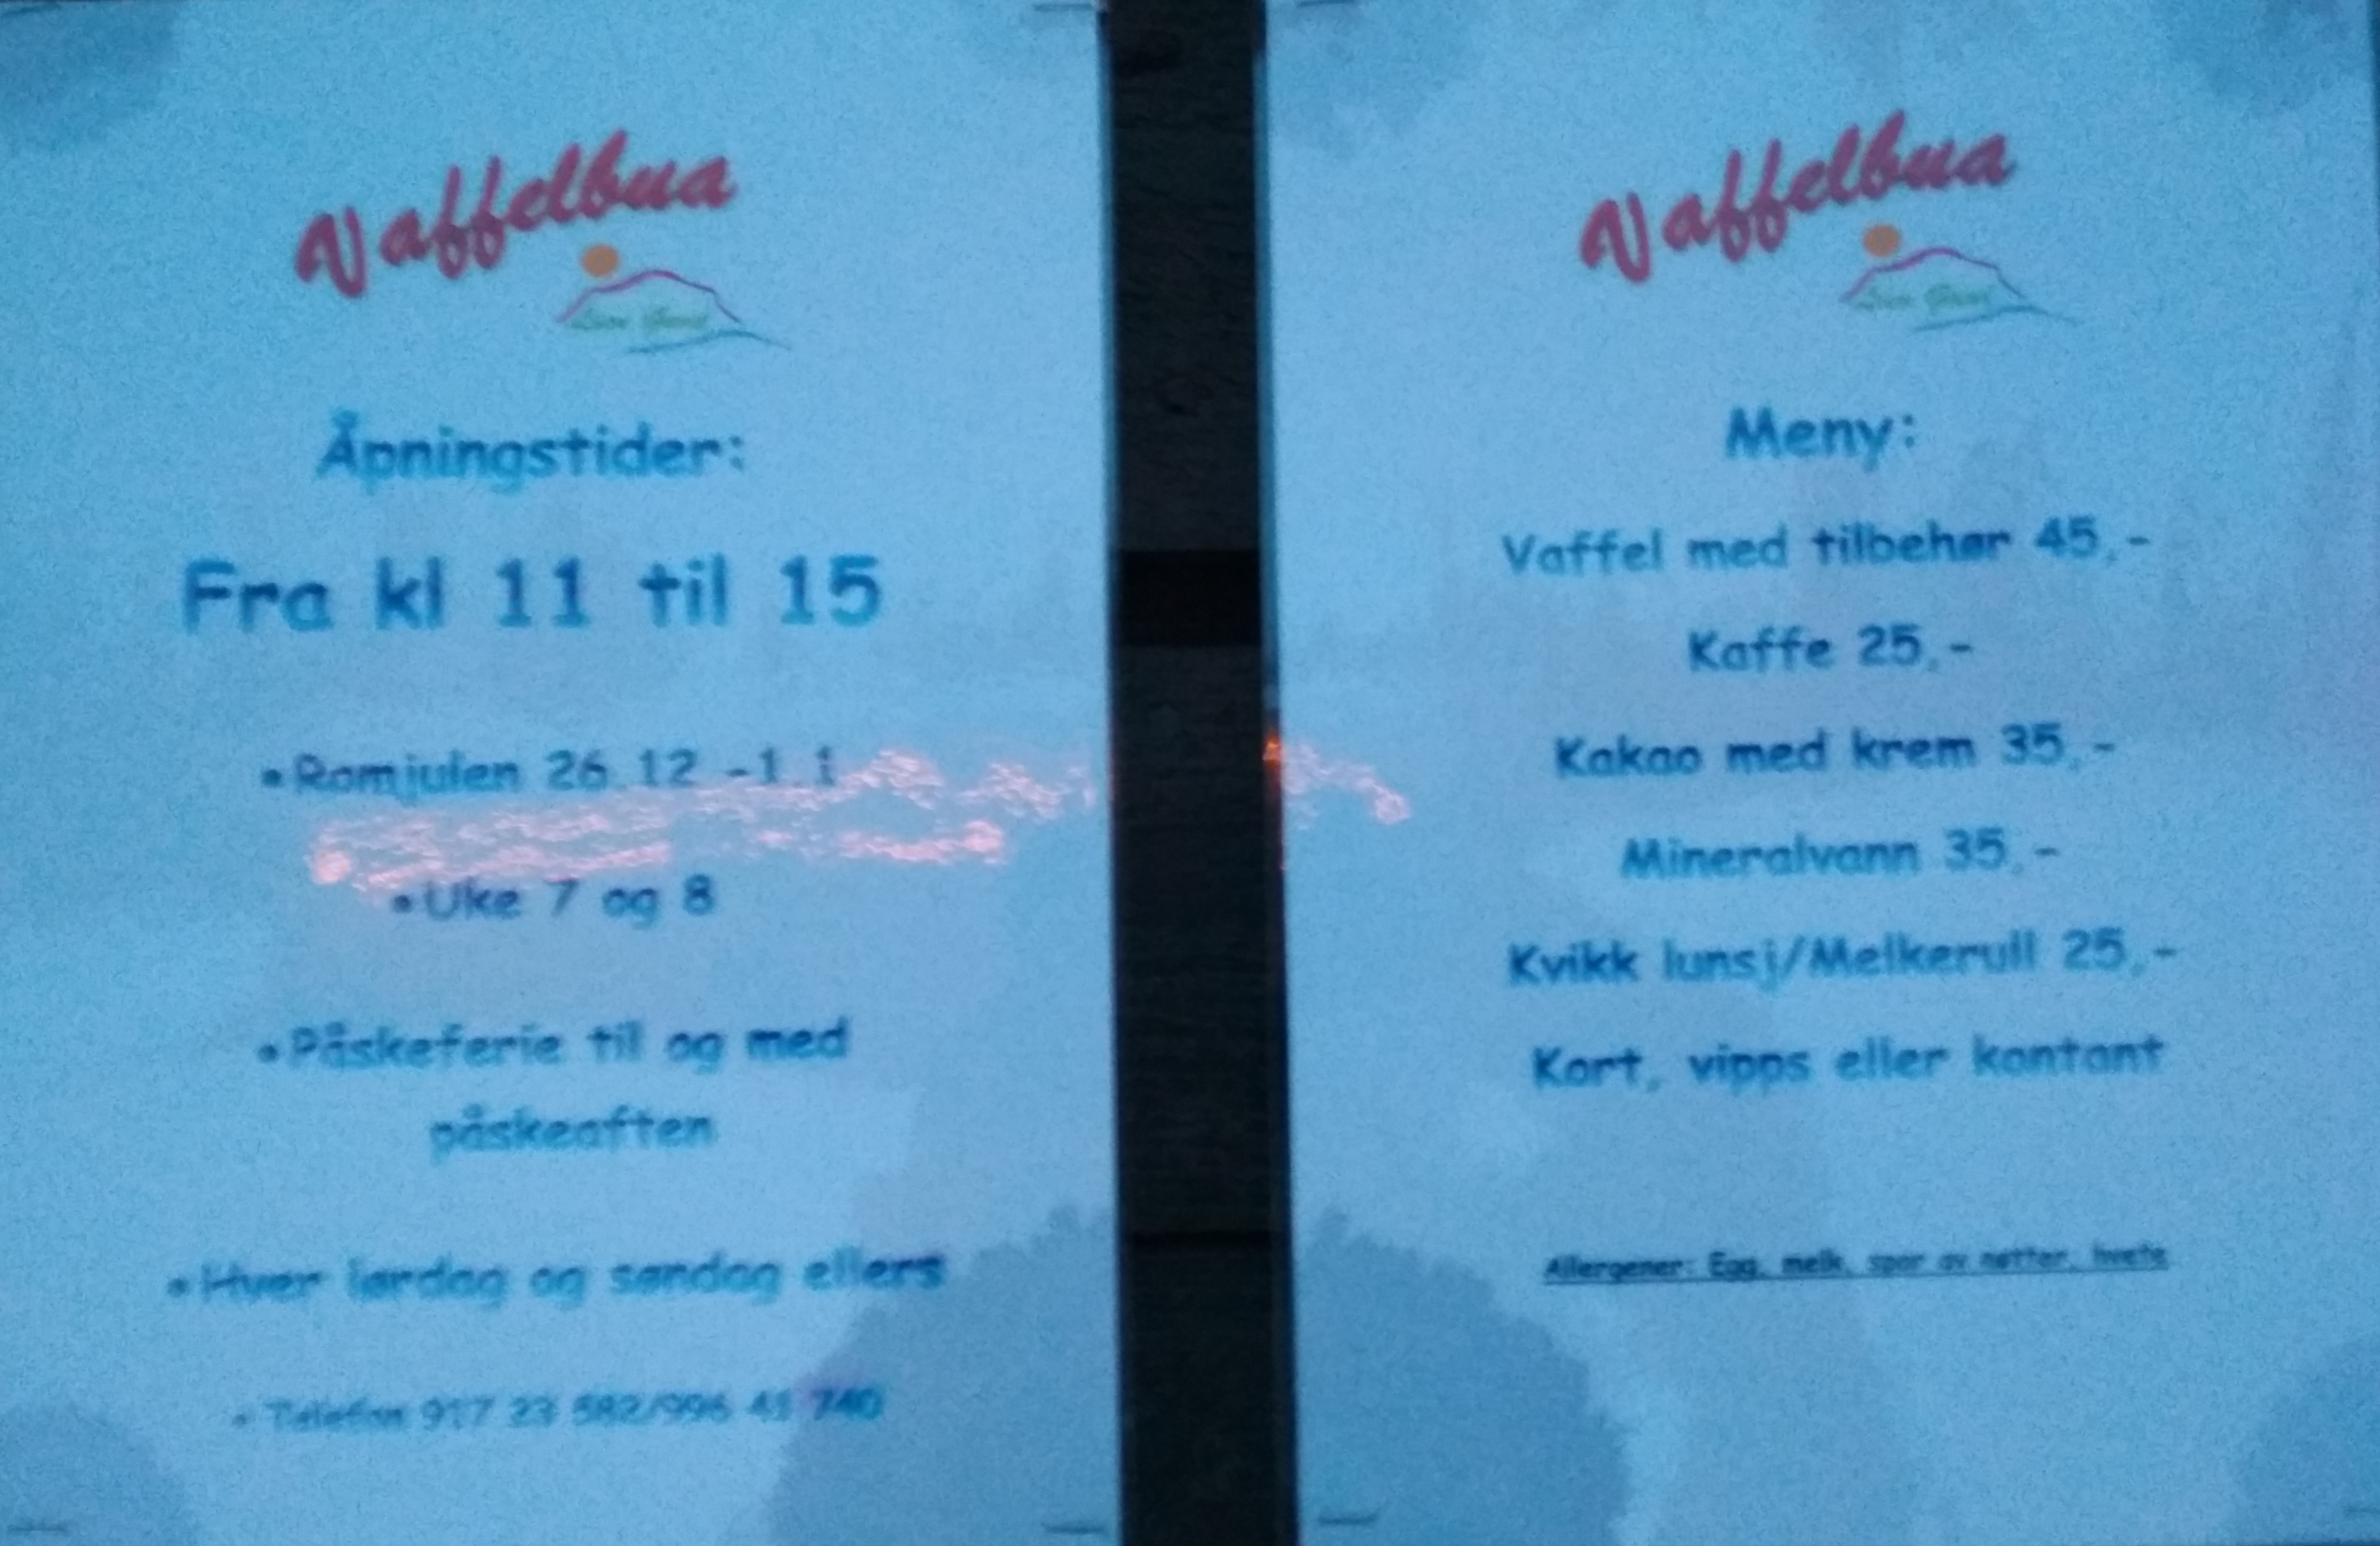 Vaffelbua
Åpningstider:
Fra kl 11 til 15
•Romjulen 26.12 -1.1
•Uke 7 og 8
•Påskeferie til og med
påskeaften
•Hver lørdag og søndag ellers
• Telefon 917 23 582/996 41 740
Vaffelbua
Meny:
Vaffel med tilbehør 45,-
Kaffe 25,-
Kakao med krem 35,-
Mineralvann 35,-
Kvikk lunsj/Melkerull 25,-
Kort, vipps eller kontant
Allergener: Egg, melk, spor av nøtter, hvete